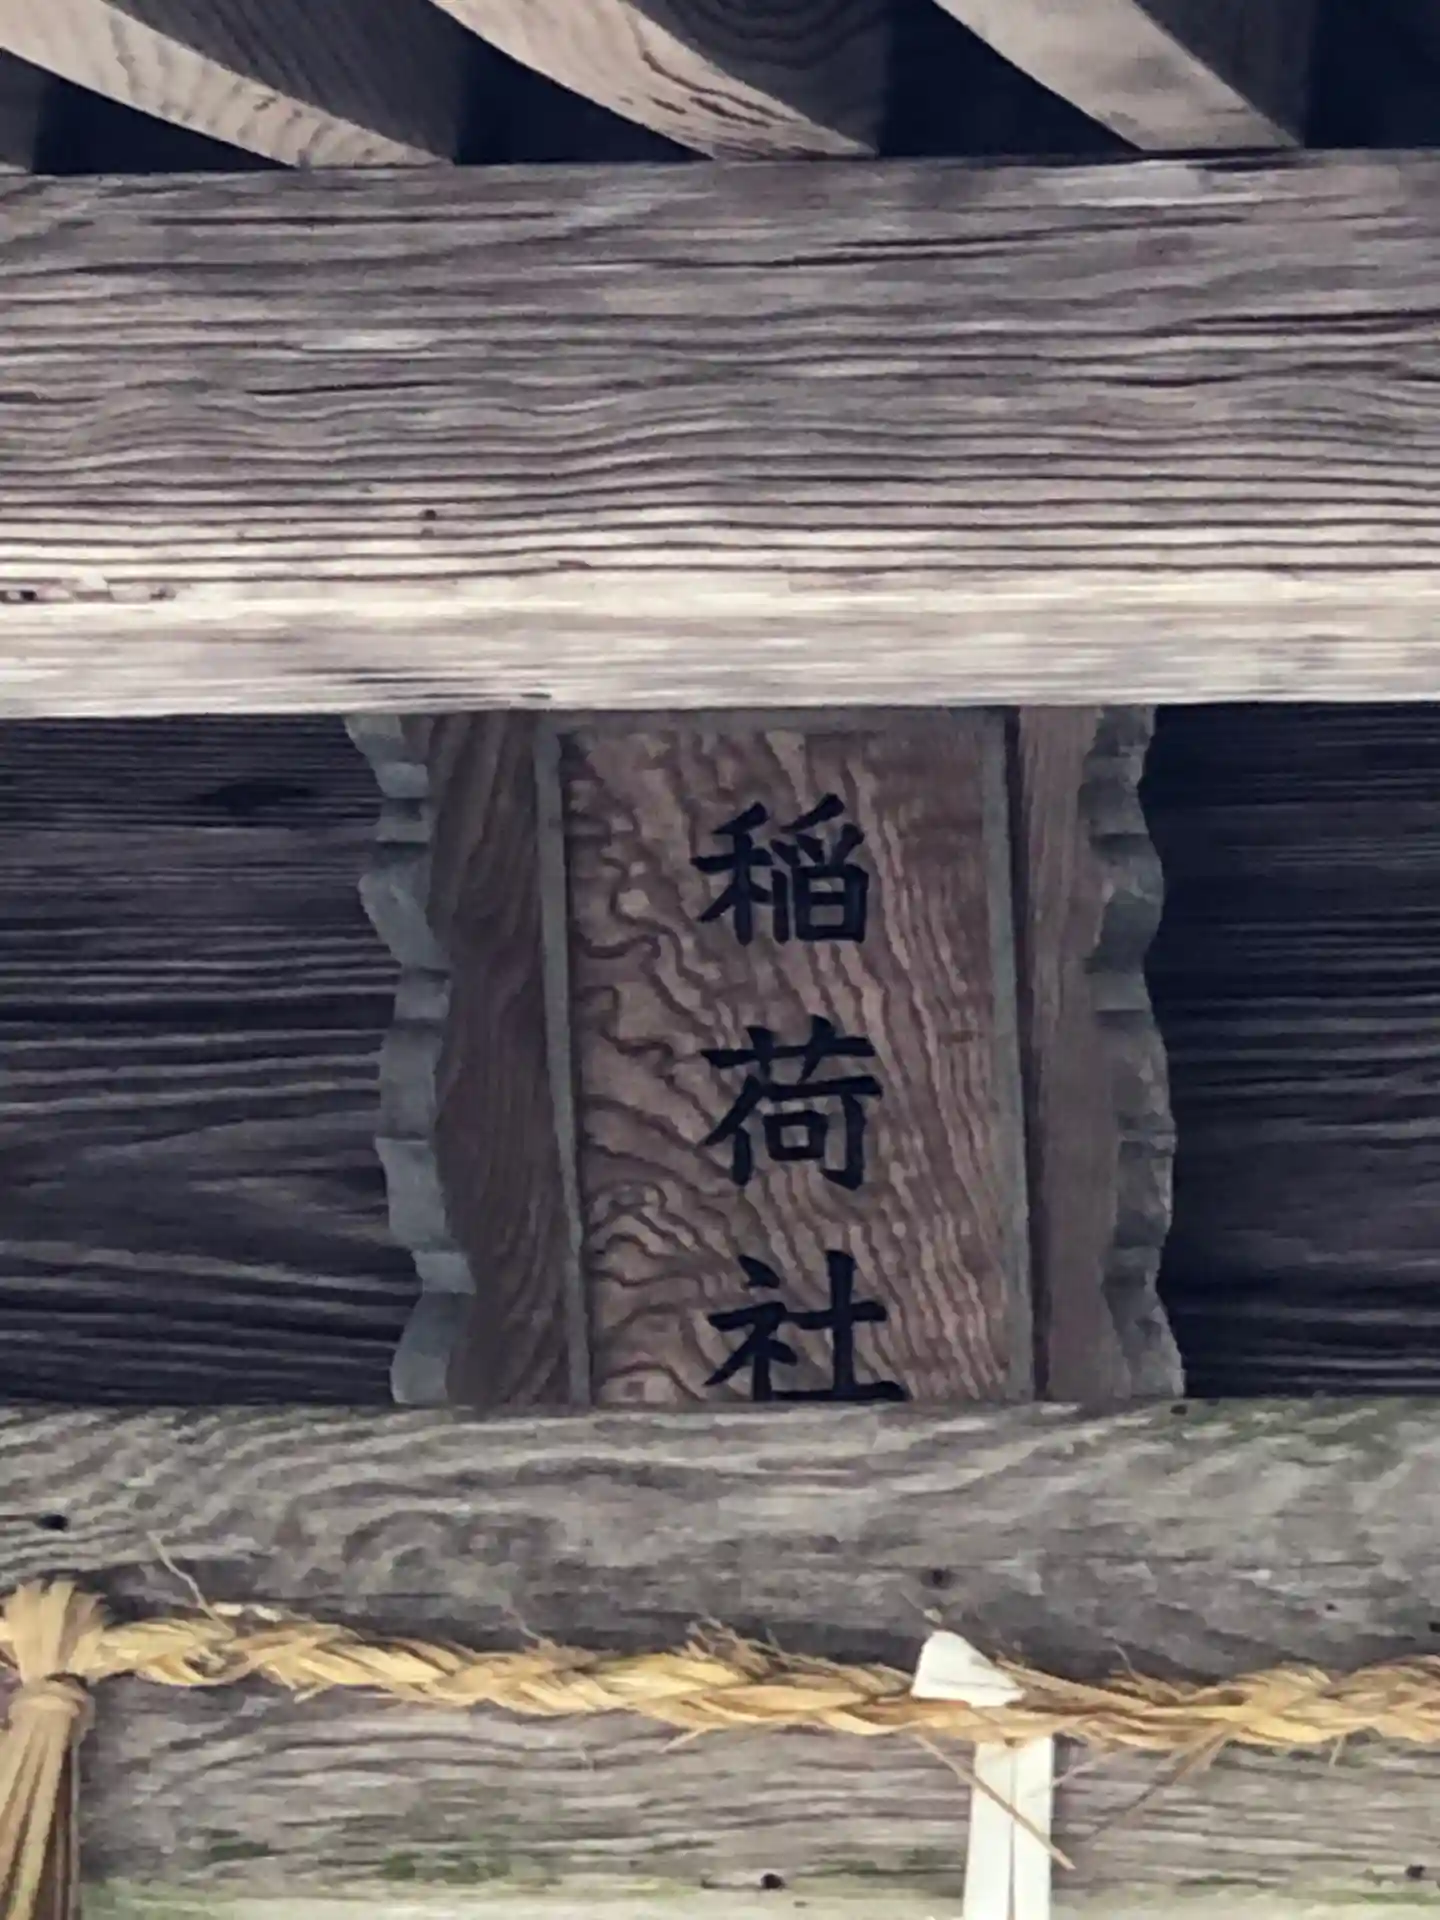 稲荷社